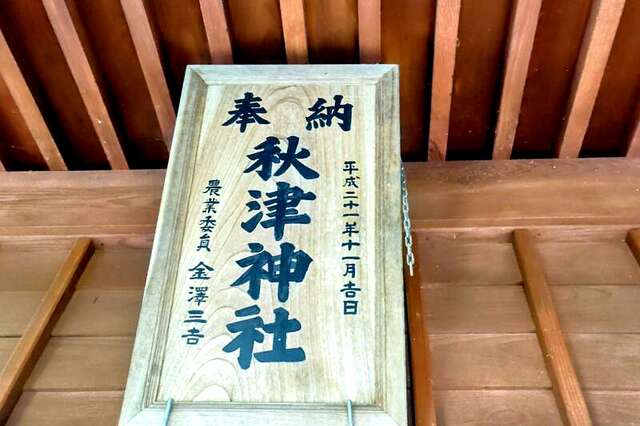 奉納
平成二十一年十一月吉日
秋津神社
農業委員 金澤三吉